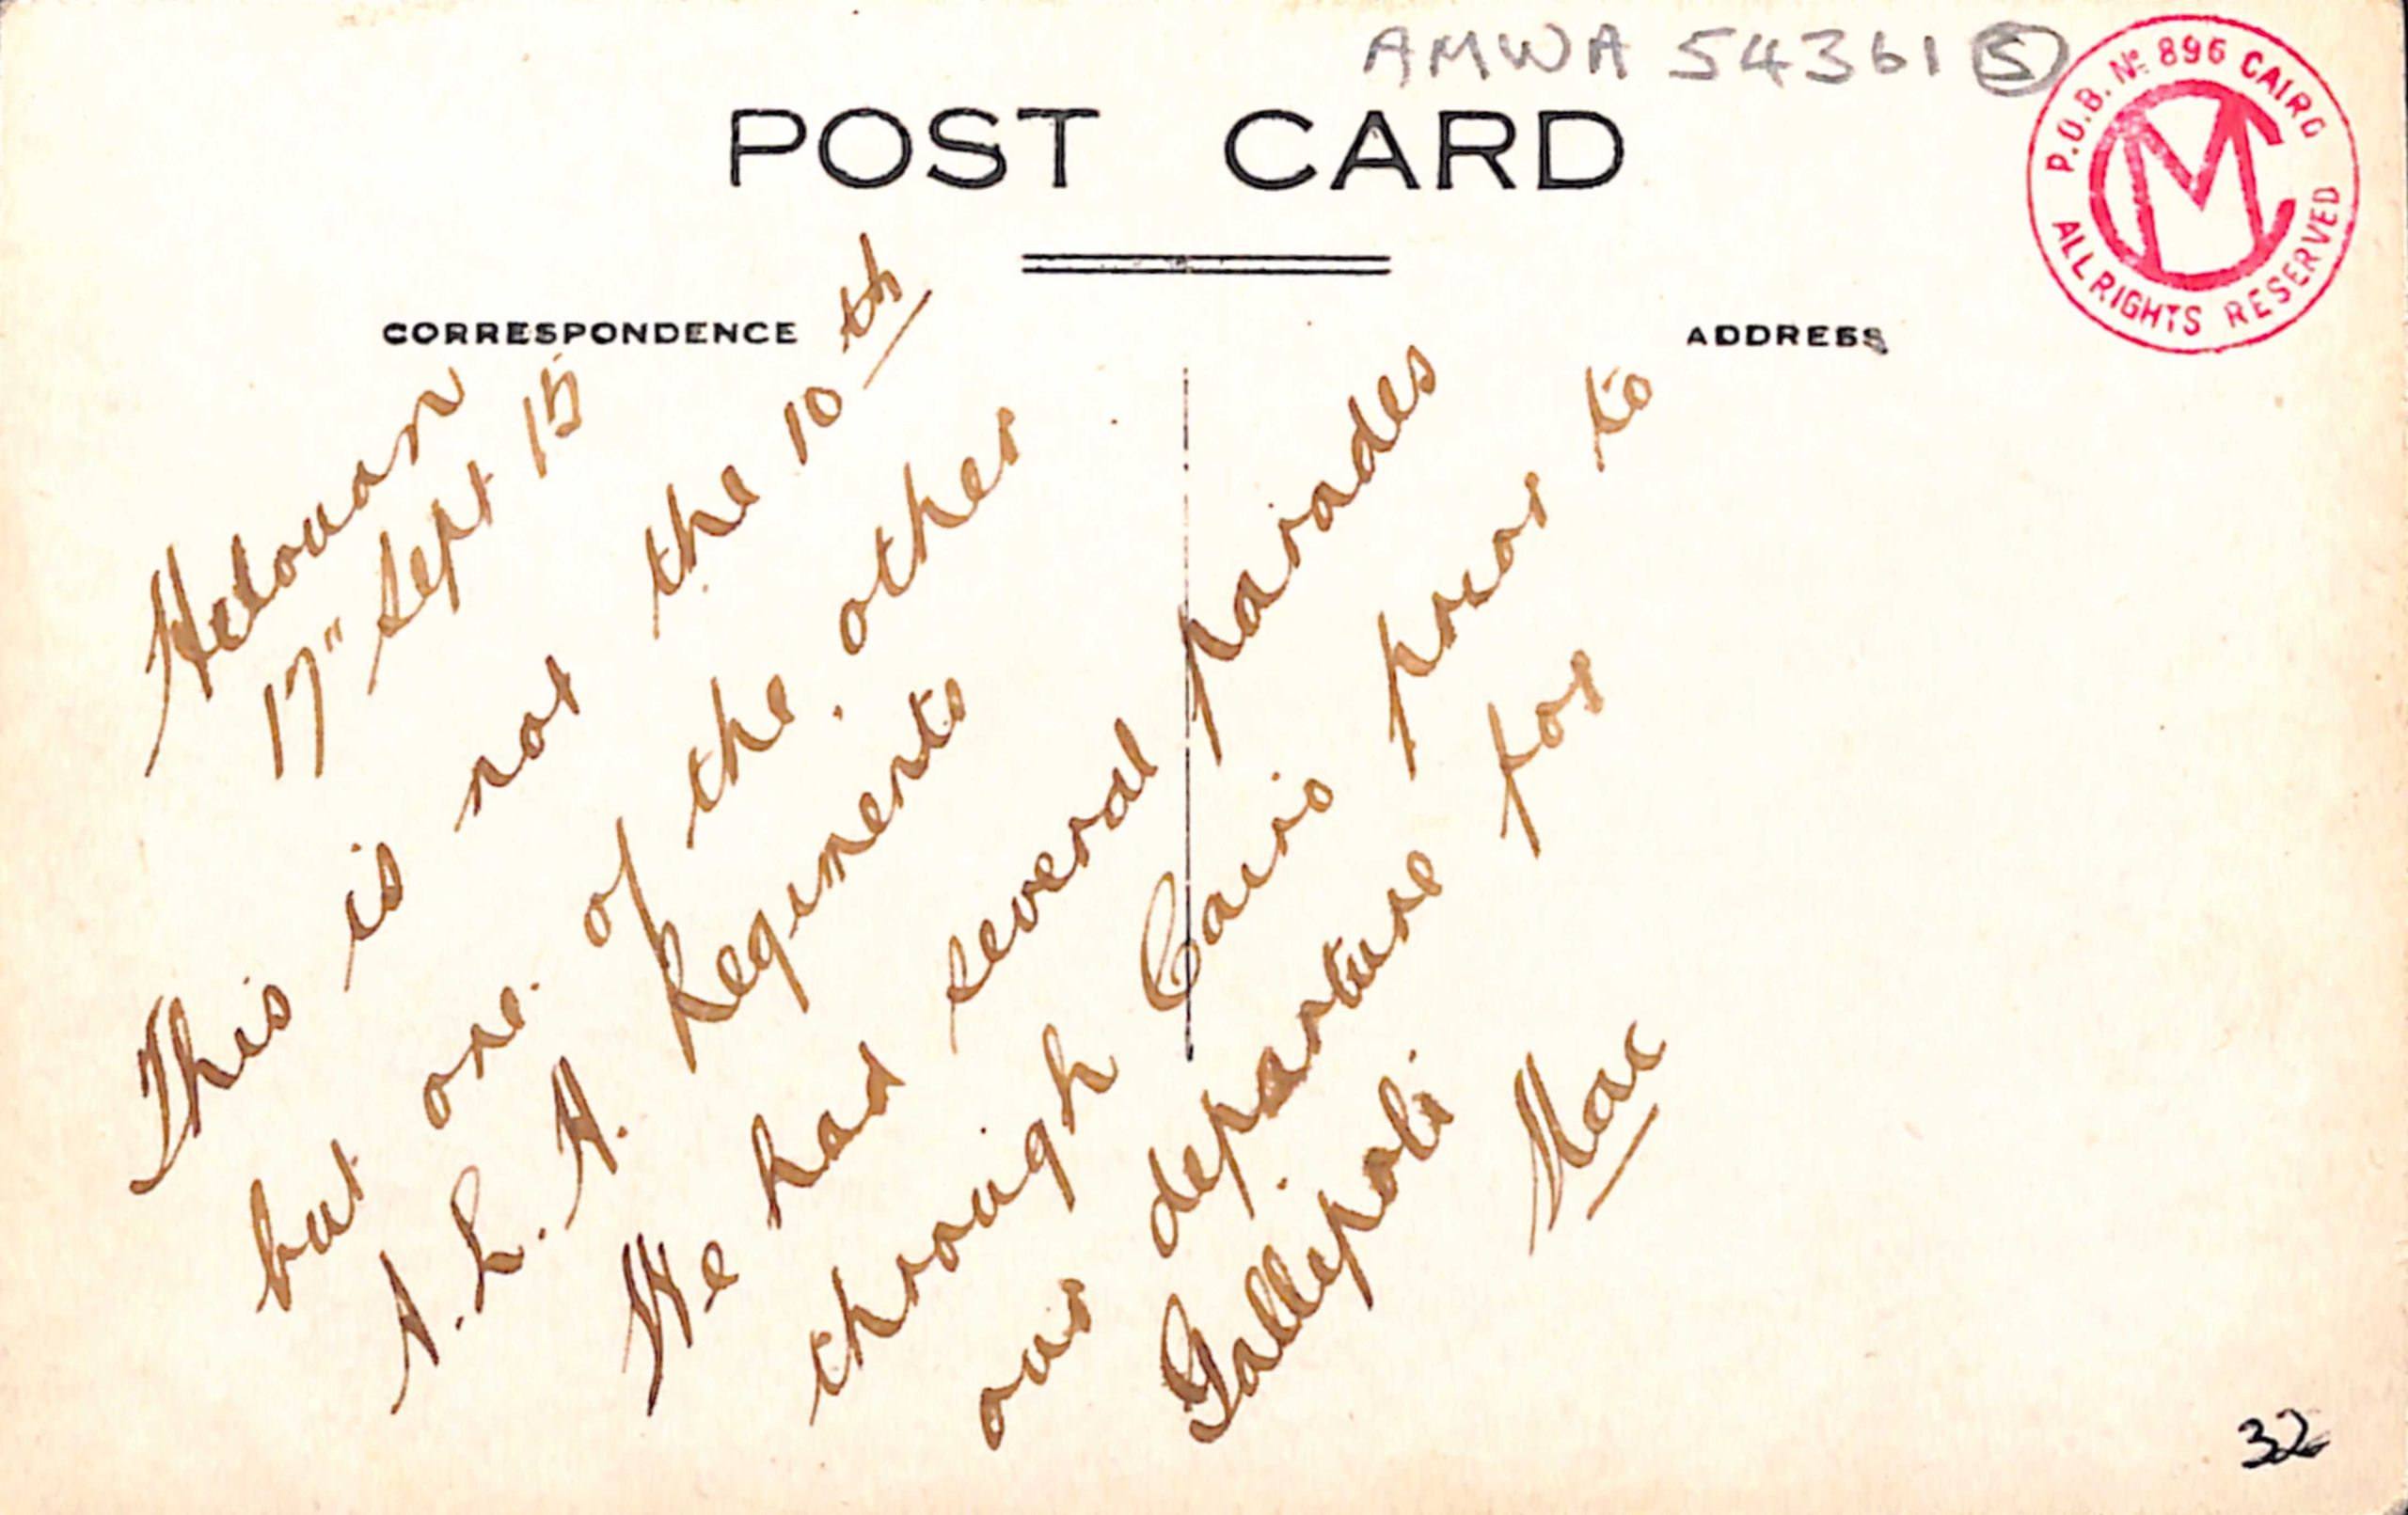 AMWA 54361 5
P.O.B. Nº 896 CAIRO
CM
ALL RIGHTS RESERVED
POST CARD
CORRESPONDENCE
ADDRESS
Helouan
17" Sept 15
This is not the 10th
but one of the other
A. L. H. Regiments
We had several parades
through Cairo prior to
our departure for
Gallipoli
Mac
32